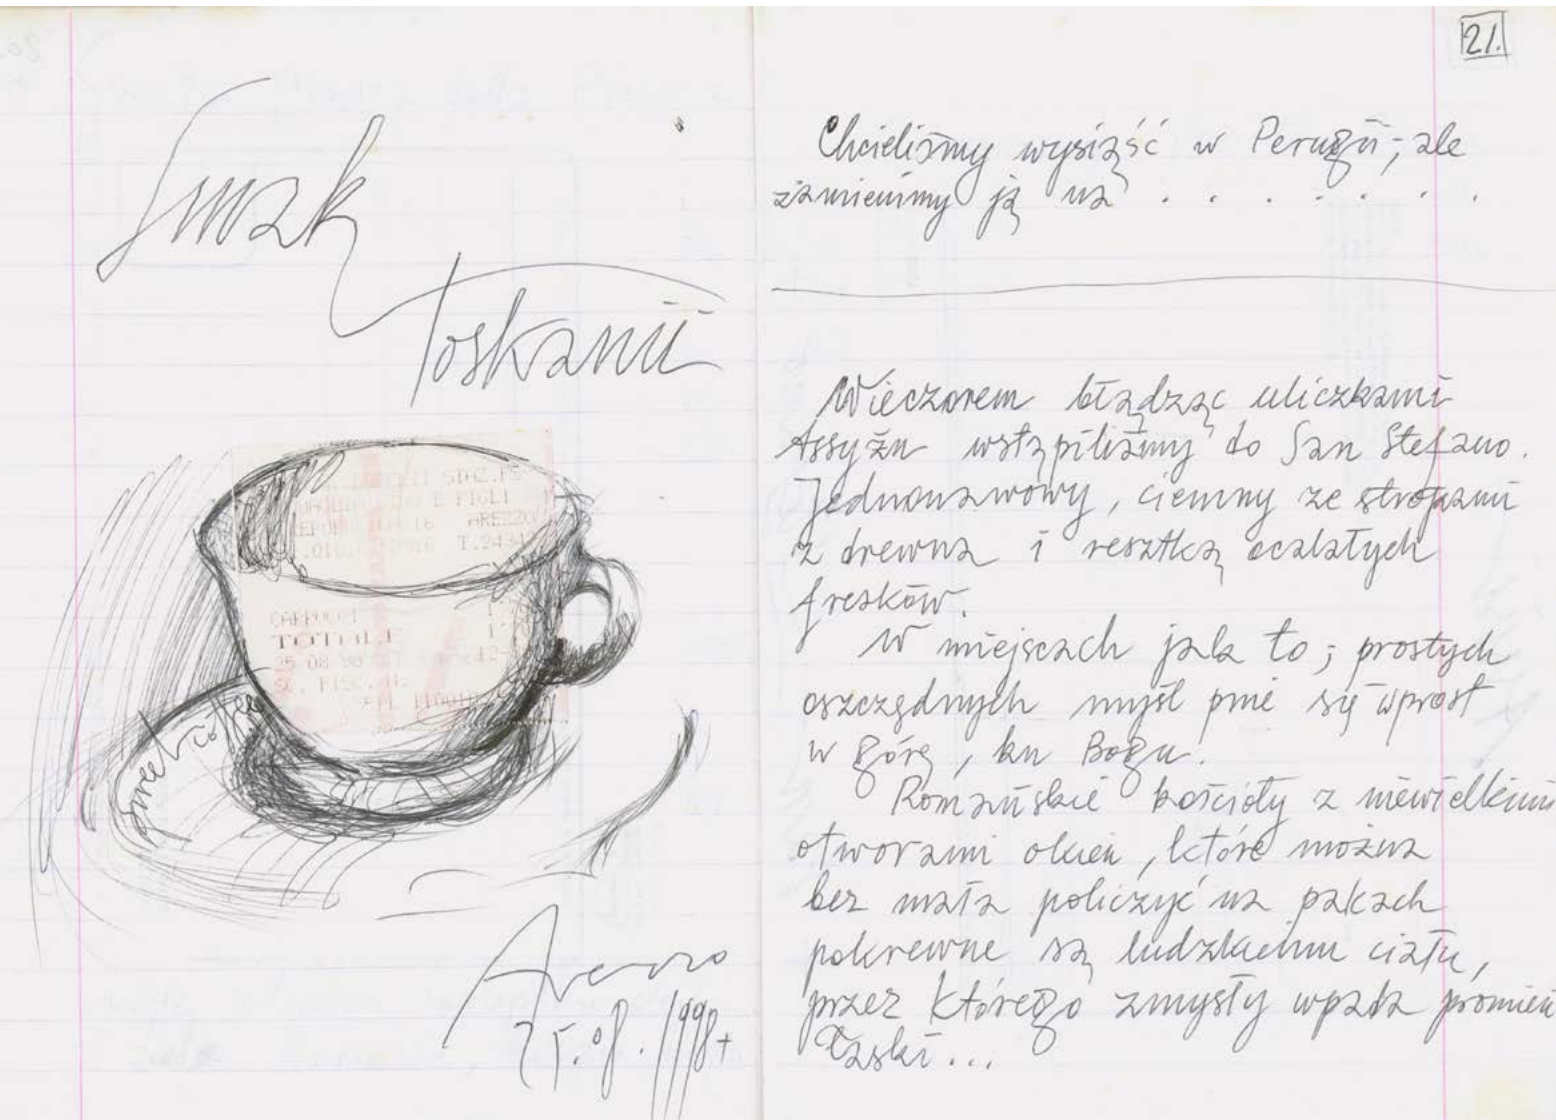 Smak
Toskanii
SDC.FS
E FIGLI
16 AREZZO
T.2434
CAPPUCCI
TOTALE
25 08 98
sweet coffee
Arezzo
25.08.1998+
21.
Chcieliśmy wysiąść w Perugii, ale
zamienimy ją na . . . . . . .
Wieczorem błądząc uliczkami
Assyżu wstąpiliśmy do San Stefano.
Jednonawowy, ciemny ze stropami
z drewna i resztką ocalałych
fresków.
W miejscach jak to; prostych
oszczędnych myśl pnie się wprost
w górę, ku Bogu.
Romańskie kościoły z niewielkimi
otworami okien, które można
bez mała policzyć na palcach
pokrewne są ludzkiemu ciału,
przez którego zmysły wpada promień
Łaski...